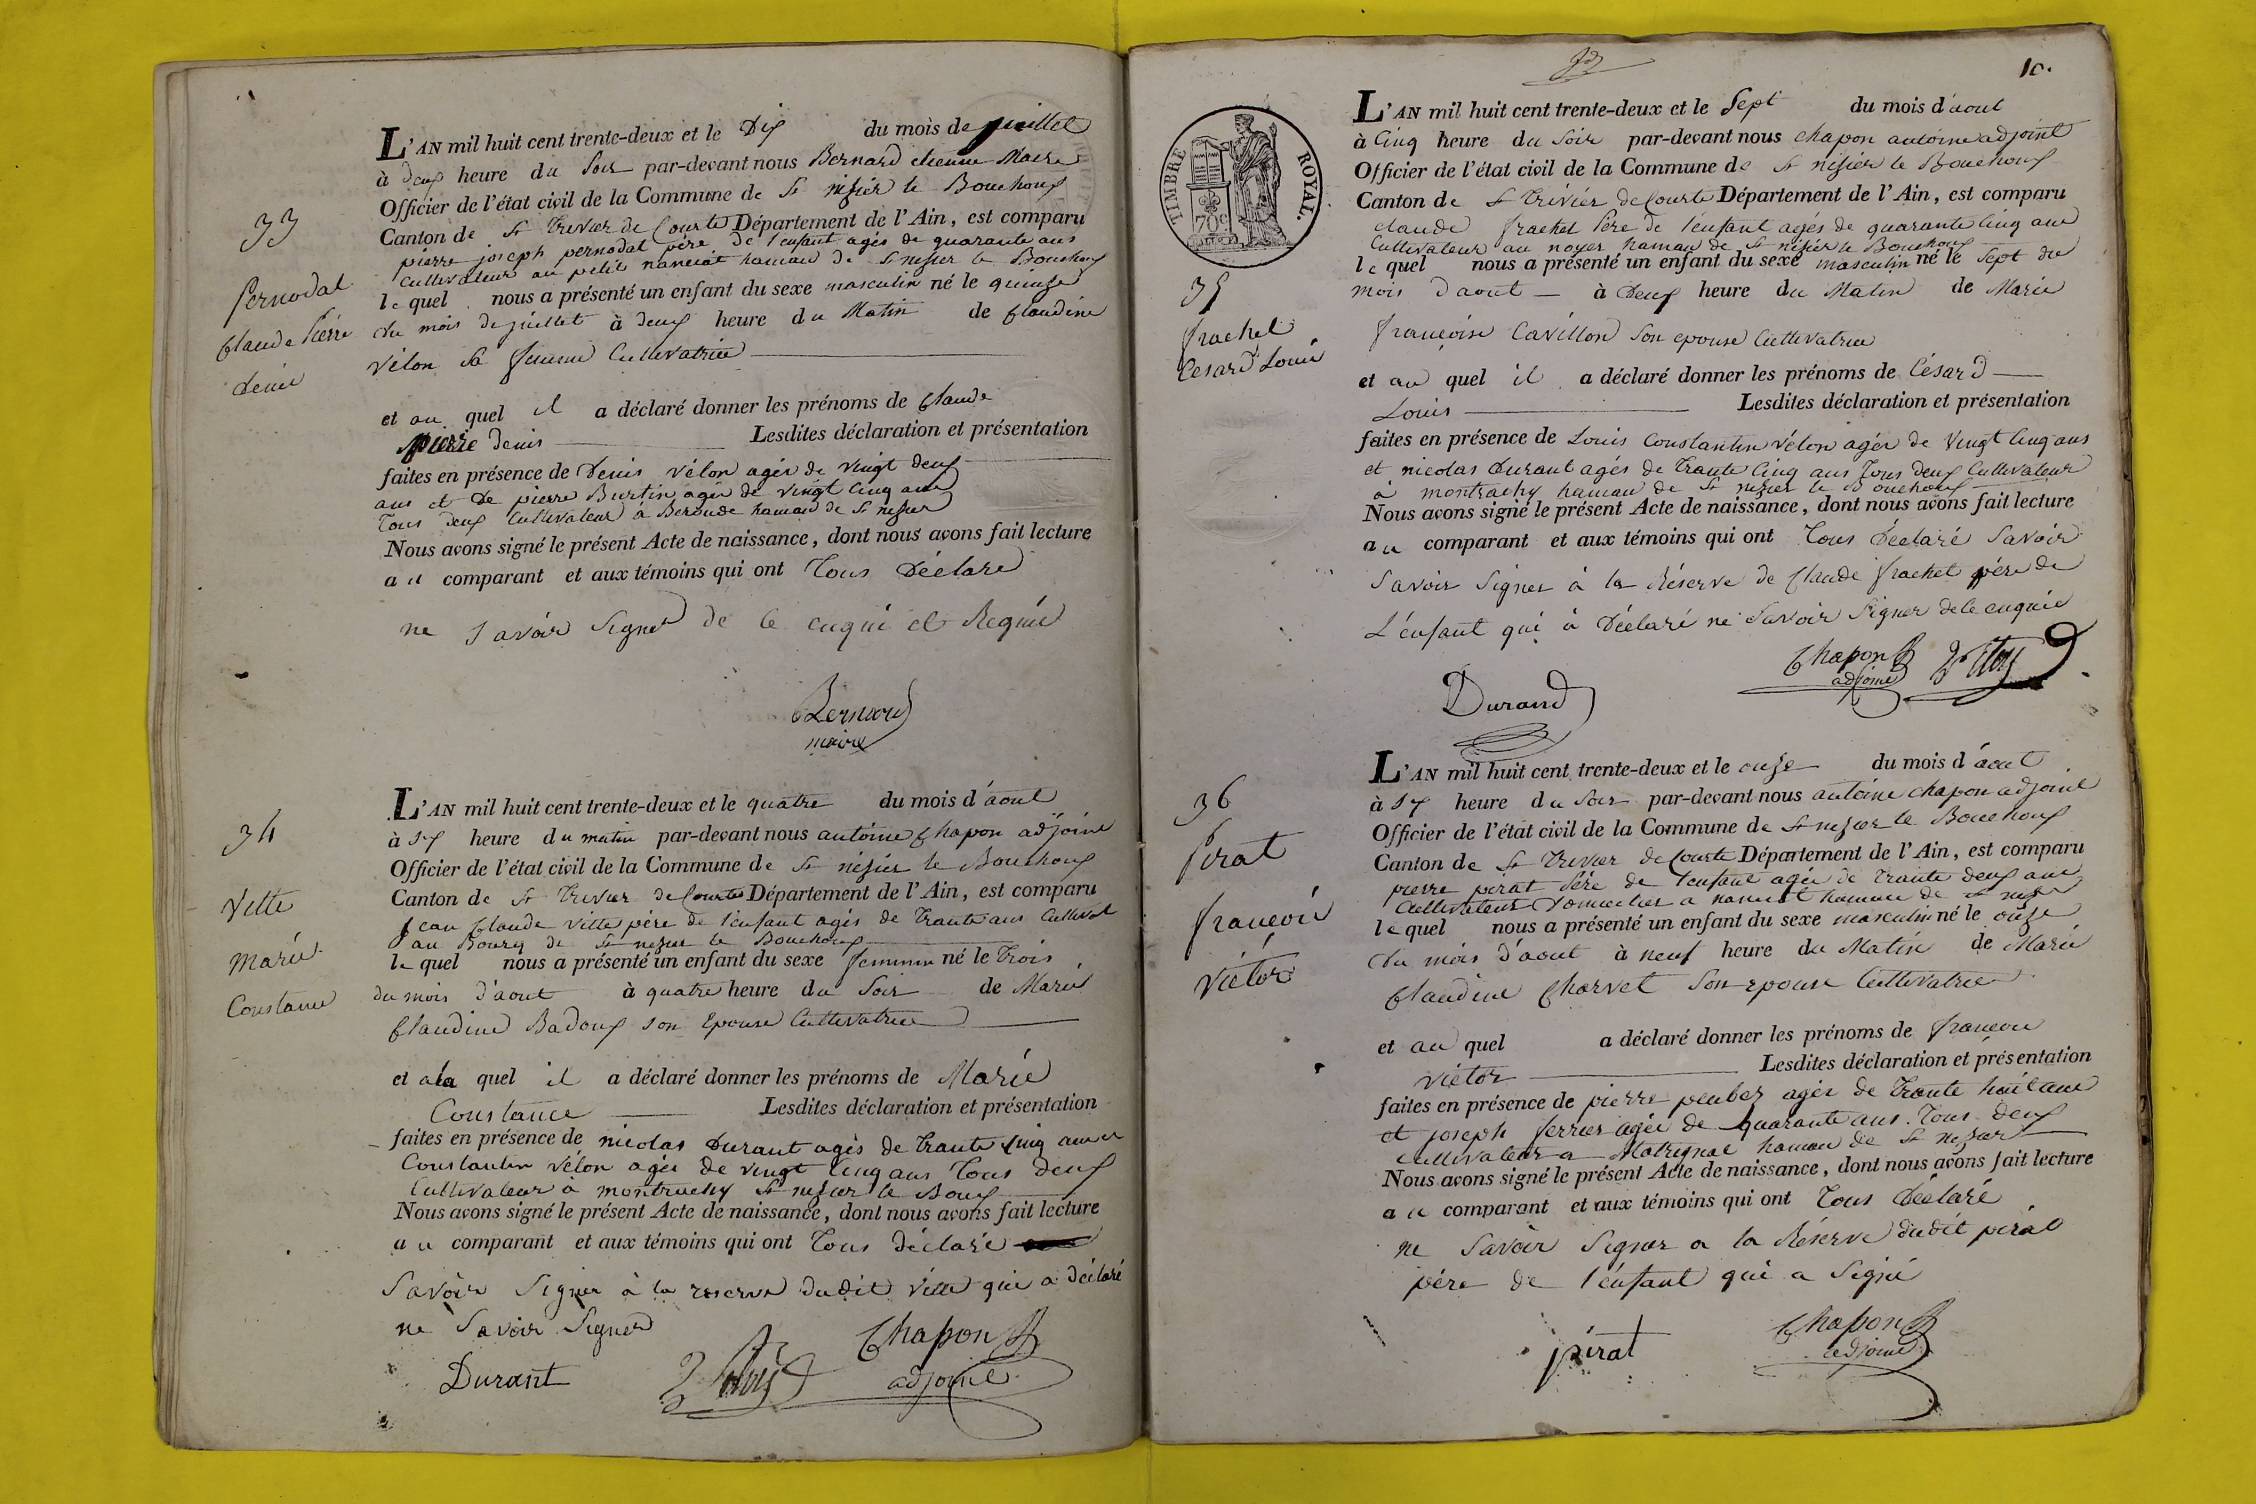 33
Pernodat
Claude Pierre
denis
L'AN mil huit cent trente-deux et le Dix du mois de juillet
à deux heure du Soir par-devant nous Bernard etienne Maire
Officier de l'état civil de la Commune de St nizier le Bouchoux
Canton de St Trivier de Courte Département de l'Ain, est comparu
pierre joseph pernodat père de l'enfant agés de quarante ans
Cultivateur au petit hamau de St nizier le Bouchoux
le quel nous a présenté un enfant du sexe masculin né le quinze
du mois de juillet à deux heure du Matin de Claudine
Vélon sa femme Cultivatrice
et au quel il a déclaré donner les prénoms de Claude
pierre denis Lesdites déclaration et présentation
faites en présence de Denis Vélon agés de vingt deux
ans et De pierre Burtin agés de vingt Cinq ans
Tous deux Cultivateur à Beroude hamau de St nizier
Nous avons signé le présent Acte de naissance, dont nous avons fait lecture
au comparant et aux témoins qui ont Tous Déclaré
ne savoir Signer de ce enquis et Requis
Bernard
maire
34
Vitte
Marie
Constance
L'AN mil huit cent trente-deux et le quatre du mois d'aout
à six heure du matin par-devant nous antoine Chapon adjoint
Officier de l'état civil de la Commune de St nizier le Bouchoux
Canton de St Trivier de Courte Département de l'Ain, est comparu
jean Claude Vitte père de l'enfant agés de Trante ans Cultivat
au Bourg de St nizier le Bouchoux
le quel nous a présenté un enfant du sexe feminin né le Trois
du mois d'aout à quatre heure du Soir de Marie
Claudine Badoux son Epouse Cultivatrice
et a la quel il a déclaré donner les prénoms de Marie
Constance Lesdites déclaration et présentation
faites en présence de nicolas Durant agés de Trante Cinq ans et
Constantin Vélon agés de vingt Cinq ans Tous deux
Cultivateur à montrachy St nizier le Boux
Nous avons signé le présent Acte de naissance, dont nous avons fait lecture
au comparant et aux témoins qui ont Tous déclaré
Savoir Signer à la reserve dudit Vitte qui a déclaré
ne Savoir Signer
Durant
Chapon
adjoint
10.
TIMBRE ROYAL.
70c
35
frachet
Cesard Louis
L'AN mil huit cent trente-deux et le Sept du mois d'aout
à Cinq heure du Soir par-devant nous Chapon antoine adjoint
Officier de l'état civil de la Commune de St nizier le Bouchoux
Canton de St Trivier de Courte Département de l'Ain, est comparu
Claude frachet Père de l'enfant agés de quarante Cinq ans
Cultivateur au noyer hamau de St nizier le Bouchoux
le quel nous a présenté un enfant du sexe masculin né le Sept du
mois d'aout à Deux heure du Matin de Marie
françoise Cavillon son epouse Cultivatrice
et au quel il a déclaré donner les prénoms de Césard
Louis Lesdites déclaration et présentation
faites en présence de Louis Constantin Vélon agés de Vingt Cinq ans
et nicolas Durant agés de Trante Cinq ans Tous deux Cultivateur
à montrachy hamau de St nizier le Bouchoux
Nous avons signé le présent Acte de naissance, dont nous avons fait lecture
au comparant et aux témoins qui ont Tous Déclaré Savoir
Savoir Signer à la Réserve de Claude frachet père de
L'enfant qui à Déclaré ne Savoir Signer de ce enquis
Durand
Chapon
adjoint
36
Pirat
françois
Victor
L'AN mil huit cent trente-deux et le onze du mois d'aout
à six heure du Soir par-devant nous antoine Chapon adjoint
Officier de l'état civil de la Commune de St nizier le Bouchoux
Canton de St Trivier de Courte Département de l'Ain, est comparu
pierre pirat Père de l'enfant agés de Trante deux ans
Cultivateur Domicilier a hamau de St nizier
le quel nous a présenté un enfant du sexe masculin né le onze
du mois d'aout à neuf heure du Matin de Marie
Claudine Charvet Son epouse Cultivatrice
et au quel a déclaré donner les prénoms de françois
victor Lesdites déclaration et présentation
faites en présence de pierre agés de Trante huit ans
et joseph ferrier agés de quarante ans. Tous deux
cultivateur a Matrignat hamau de St nizier
Nous avons signé le présent Acte de naissance, dont nous avons fait lecture
au comparant et aux témoins qui ont Tous Déclaré
ne Savoir Signer a la Réserve dudit pirat
père de l'enfant qui a Signé
pirat
Chapon
adjoint